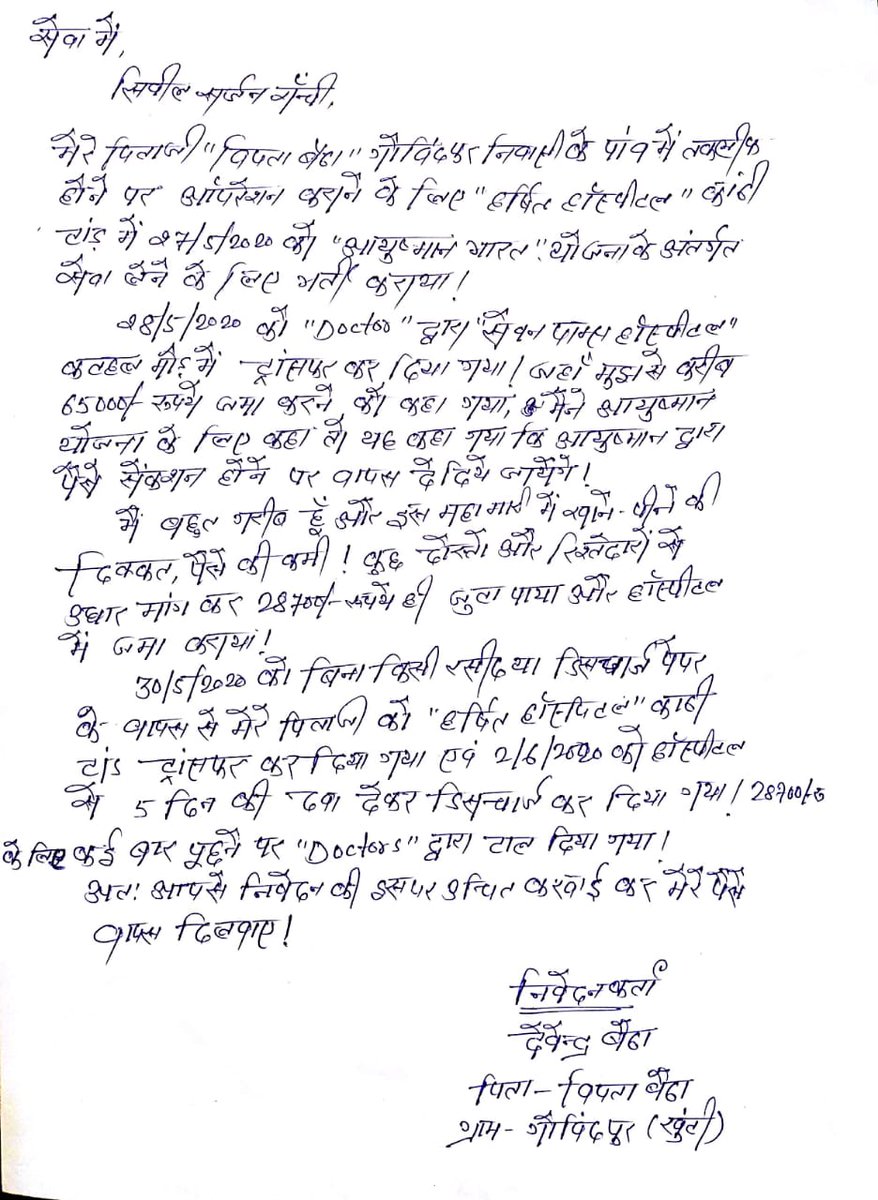 सेवा में,
सिवील सर्जन राँची,
मेरे पिताजी "विपता बैठा" गोविंदपुर निवासी के पांव में तकलीफ
होने पर ऑपरेशन कराने के लिए "हर्षित हॉस्पीटल" कांठी
टांड़ में 27/5/2020 को "आयुष्मान भारत" योजना के अंतर्गत
सेवा लेने के लिए भर्ती कराया!
28/5/2020 को "Doctor" द्वारा "सेवन पाम्स हॉस्पीटल"
कतहल मोड़ में ट्रांसफर कर दिया गया! जहाँ मुझसे करीब
65000/- रूपये जमा करने को कहा गया, मैंने आयुष्मान
योजना के लिए कहा तो यह कहा गया कि आयुष्मान द्वारा
पैसे सेंक्शन होने पर वापस दे दिये जायेंगे!
मैं बहुत गरीब हूँ और इस महामारी में खाने-पीने की
दिक्कत, पैसे की कमी! कुछ दोस्तो और रिश्तेदारों से
उधार मांग कर 28700/- रूपये ही जुटा पाया और हॉस्पीटल
में जमा कराया!
30/5/2020 को बिना किसी रसीद या डिसचार्ज पेपर
के वापस से मेरे पिताजी को "हर्षित हॉस्पिटल" काठी
टांड ट्रांसफर कर दिया गया एवं 2/6/2020 को हॉस्पीटल
से 5 दिन की दवा देकर डिसचार्ज कर दिया गया! 28700/-रु
के लिए कई बार पूछने पर "Doctors" द्वारा टाल दिया गया!
अतः आपसे निवेदन की इसपर उचित करवाई कर मेरे पैसे
वापस दिलवाए!
निवेदनकर्ता
देवेन्द्र बैठा
पिता - विपता बैठा
ग्राम - गोविंदपुर (खुंटी)